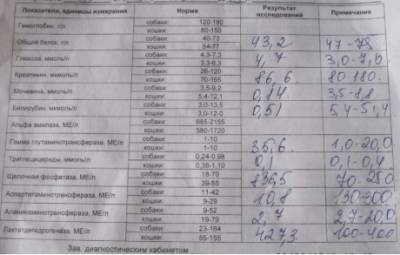 Показатели, единицы измерений Норма Результат исследований Примечания
Гемоглобин, г/л собаки: 120-180
кошки: 80-150
Общий белок, г/л собаки: 40-73 43,2 47-73
кошки: 54-77
Глюкоза, ммоль/л собаки: 4,3-7,3 4,7 3,0-7,0
кошки: 3,3-6,3
Креатинин, мкмоль/л собаки: 26-120 86,6 80 180.
кошки: 70-165
Мочевина, ммоль/л собаки: 3,5-9,2 0,14
кошки: 5,4-12,1
Билирубин, мкмоль/л собаки: 3,0-13,5 0,51 5,4-51,4
кошки: 3,0-12,0
Альфа амилаза, МЕ/л собаки: 685-2155
кошки: 580-1720
Гамма глутаминтрансфераза, МЕ/л собаки: 1-10 35,6 1,0-20,0
кошки: 1-10
Триглицериды, ммоль/л собаки: 0,24-0,98 0,1 0,1-0,4
кошки: 0,38-1,10
Щелочная фосфатаза, МЕ/л собаки: 18-70 836,5 70-250
кошки: 39-55
Аспартатаминотрансфераза, МЕ/л собаки: 11-42 10,8 130-300
кошки: 9-29
Аланинаминотрансфераза, МЕ/л собаки: 9-52 2,7 2,7-20,0
кошки: 19-79
Лактатдегидрогеназа, МЕ/л собаки: 23-164 427,3 100-400
кошки: 55-155
Зав. диагностическим кабинетом